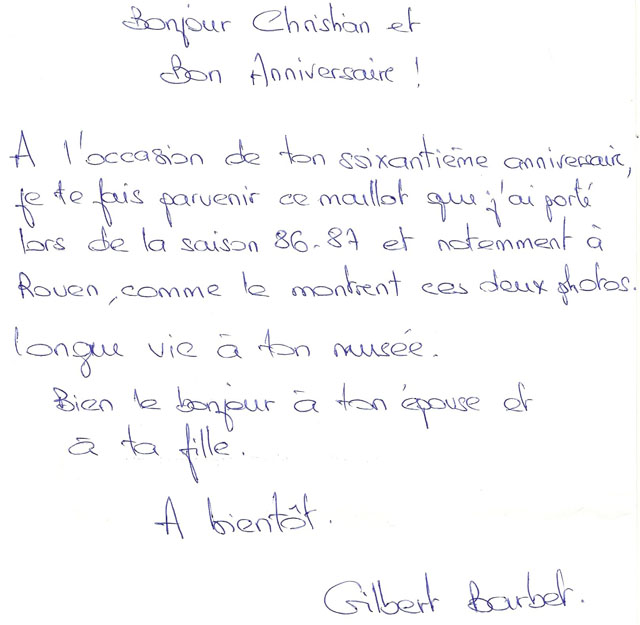 Bonjour Christian et
Bon Anniversaire !
A l'occasion de ton soixantième anniversaire,
je te fais parvenir ce maillot que j'ai porté
lors de la saison 86-87 et notemment à
Rouen, comme le montrent ces deux photos.
longue vie à ton musée.
Bien le bonjour à ton épouse et
à ta fille.
A bientôt.
Gilbert Barbet.